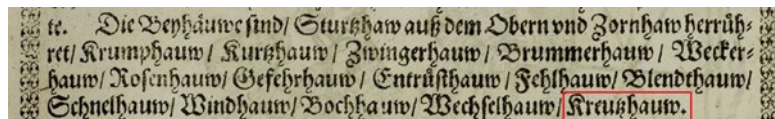 te. Die Beyhäuwe sind/ Sturtzhaw auß dem Obern vnd Zornhaw herrüh⸗
ret/ Krumphauw/ Kurtzhauw/ Zwingerhauw/ Brummerhauw/ Wecker⸗
hauw/ Rosenhauw/ Gefehrhauw/ Entrüsthauw/ Fehlhauw/ Blendthauw/
Schnelhauw/ Windhauw/ Bochhauw/ Wechselhauw/ Kreutzhauw.